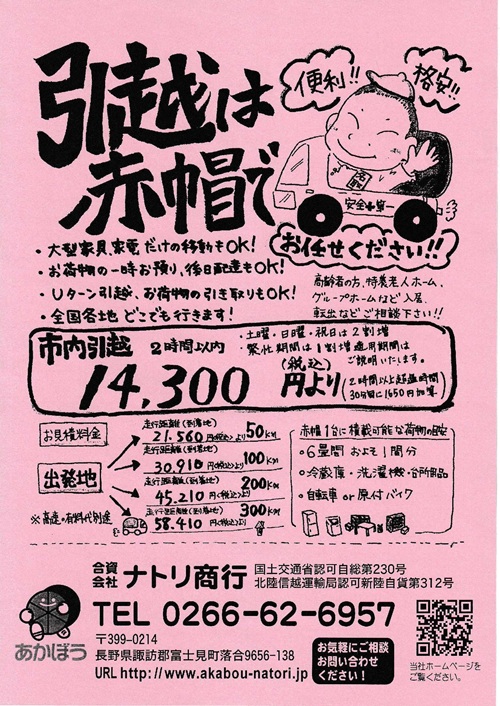 引越は
赤帽で
便利!!
格安!!
安全第一
お任せください!!
・大型家具、家電だけの移動もOK!
・お荷物の一時お預り、後日配達もOK!
・Uターン引越、お荷物の引き取りもOK!
・全国各地どこでも行きます!
高齢者の方、特養老人ホーム、
グループホームなど入居、
転出などご相談下さい!!
市内引越 2時間以内
・土曜・日曜・祝日は2割増
・繁忙期間は1割増 適用期間は
ご説明いたします。
14,300円より
(税込)
(2時間以上超過時間
30分毎に1650円加算)
お見積料金
出発地
走行距離(到着地)
21.560円(税込)より 50km
走行距離(到着地)
30.910円(税込)より 100km
走行距離(到着地)
45.210円(税込)より 200km
走行距離(到着地)
58.410円(税込)より 300km
※高速・有料代別途
赤帽1台に積載可能な荷物の目安
・6畳間 およそ1間分
・冷蔵庫・洗濯機・台所用品
・自転車 or 原付バイク
合資会社 ナトリ商行
国土交通省認可自総第230号
北陸信越運輸局認可新陸自貨第312号
TEL 0266-62-6957
〒399-0214
長野県諏訪郡富士見町落合9656-138
URL http://www.akabou-natori.jp
あかぼう
お気軽にご相談
お問い合わせ
ください!
当社ホームページを
ご覧ください。